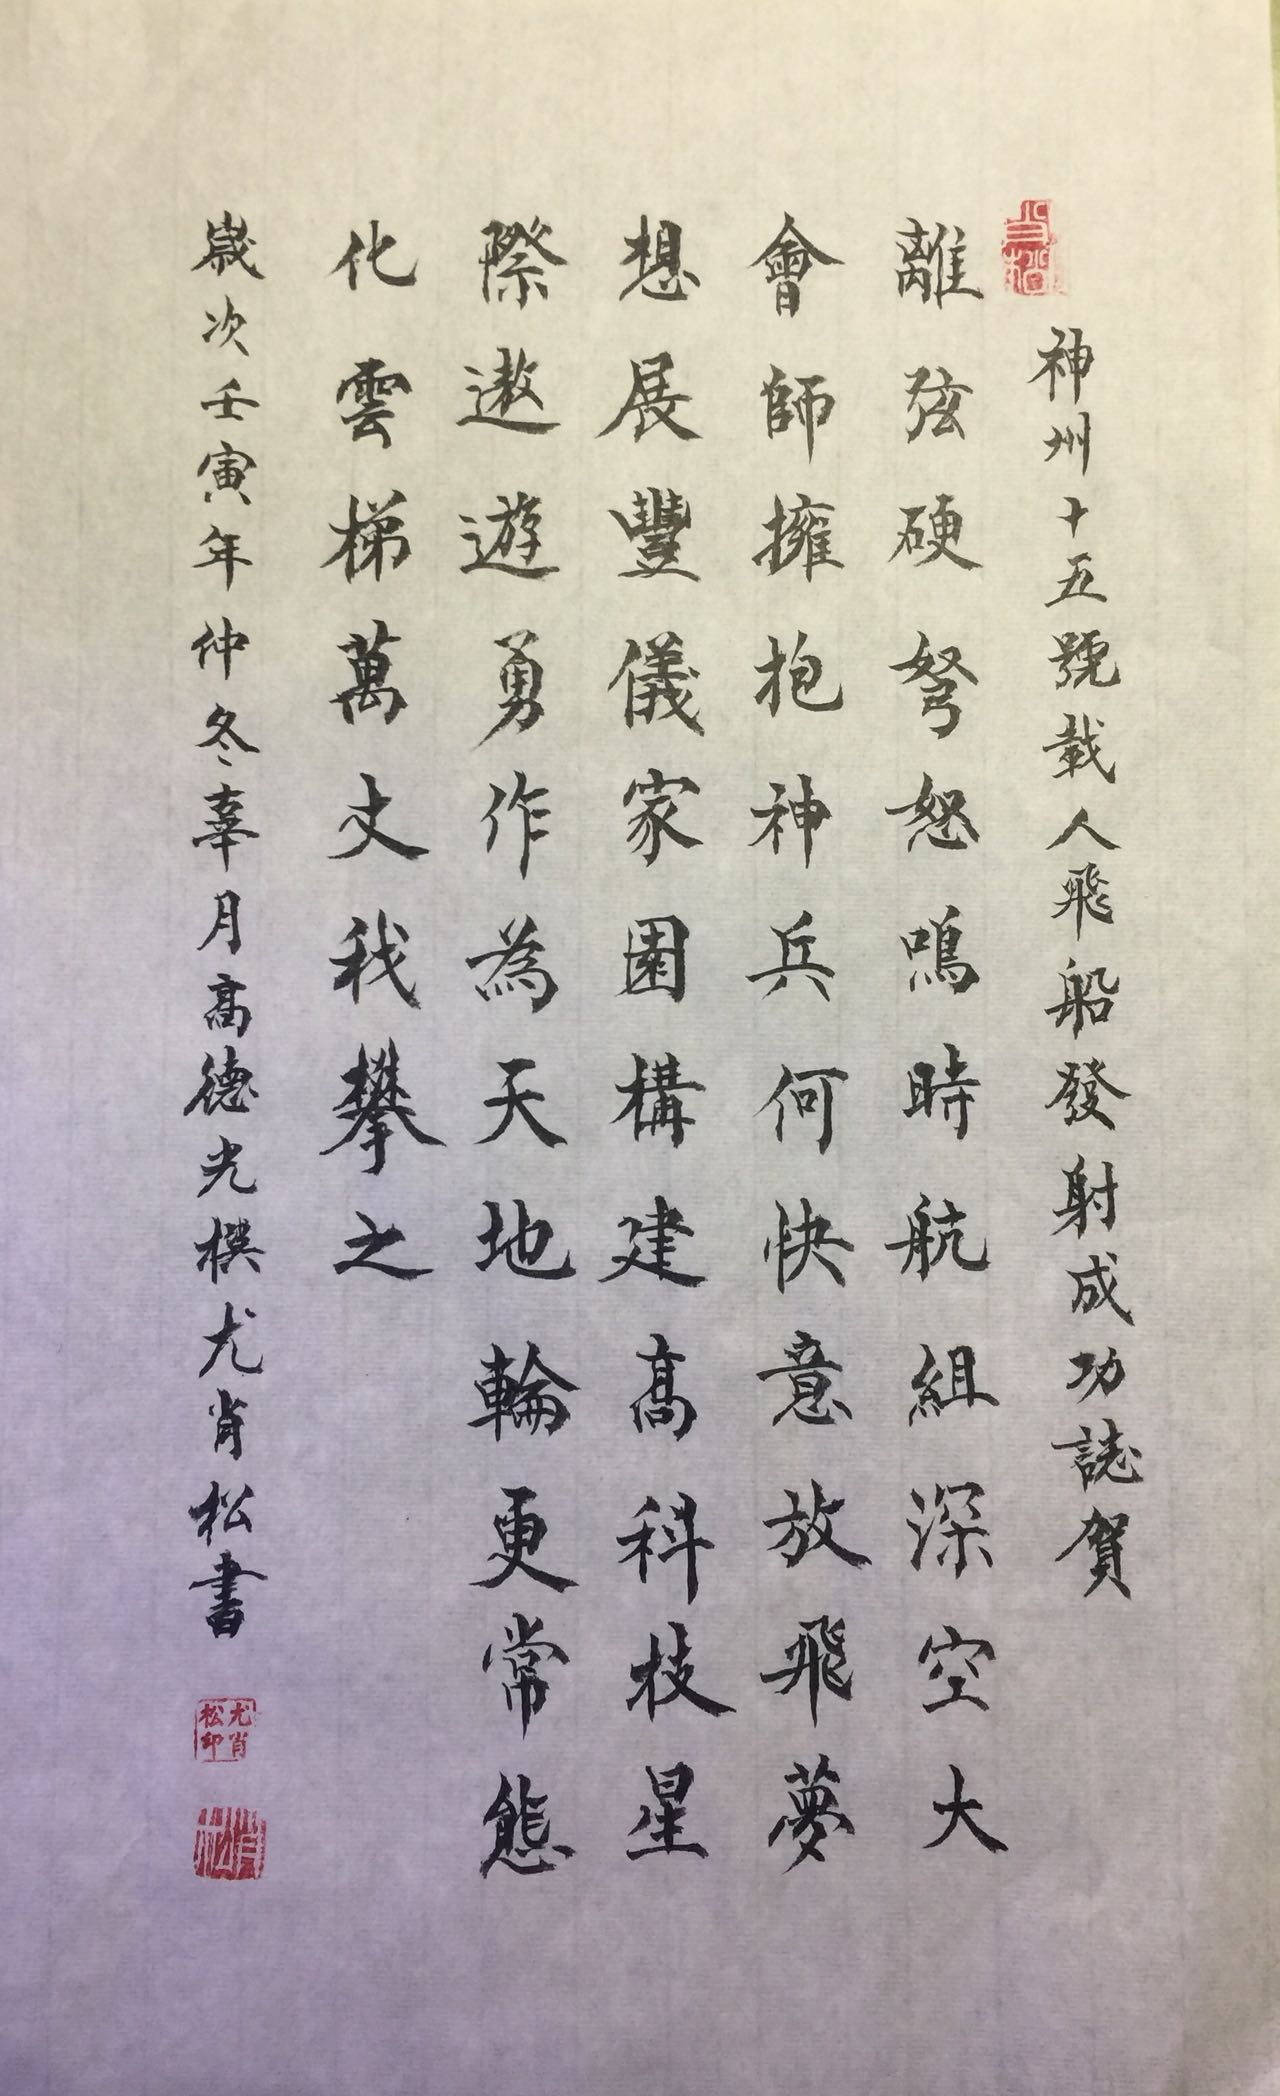 神州十五號載人飛船發射成功誌賀
離弦硬弩怒鳴時航組深空大
會師擁抱神兵何快意放飛夢
想展豐儀家園構建高科技星
際遨遊勇作為天地輪更常態
化雲梯萬丈我攀之
歲次壬寅年仲冬辜月高德光撰尤肖松書
尤肖松印